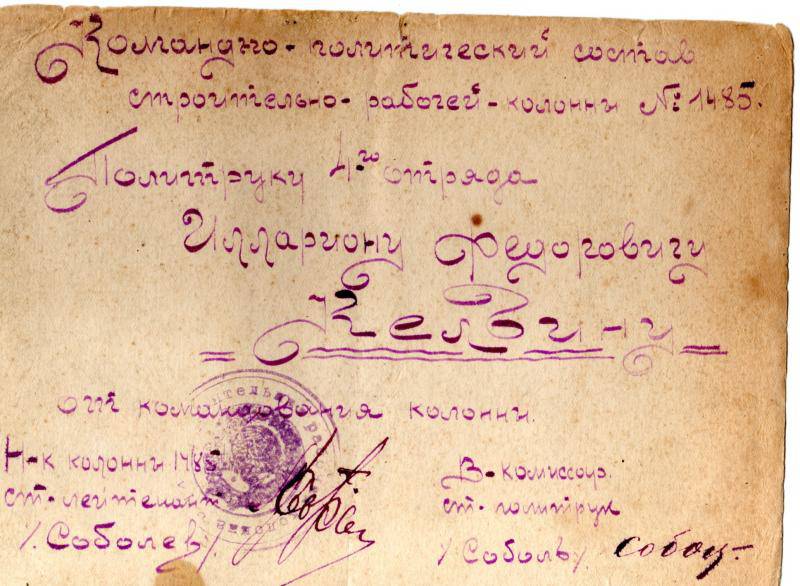 Командно-политический состав
строительно-рабочей-колонны №1485.
Политруку 4го отряда
Иллариону Федоровичу
= Келвину =
от командования колонны.
Н-к колонны 1485
ст-лейтенант
/Соболев/
В-комиссар.
ст-политрук
/Соболь/